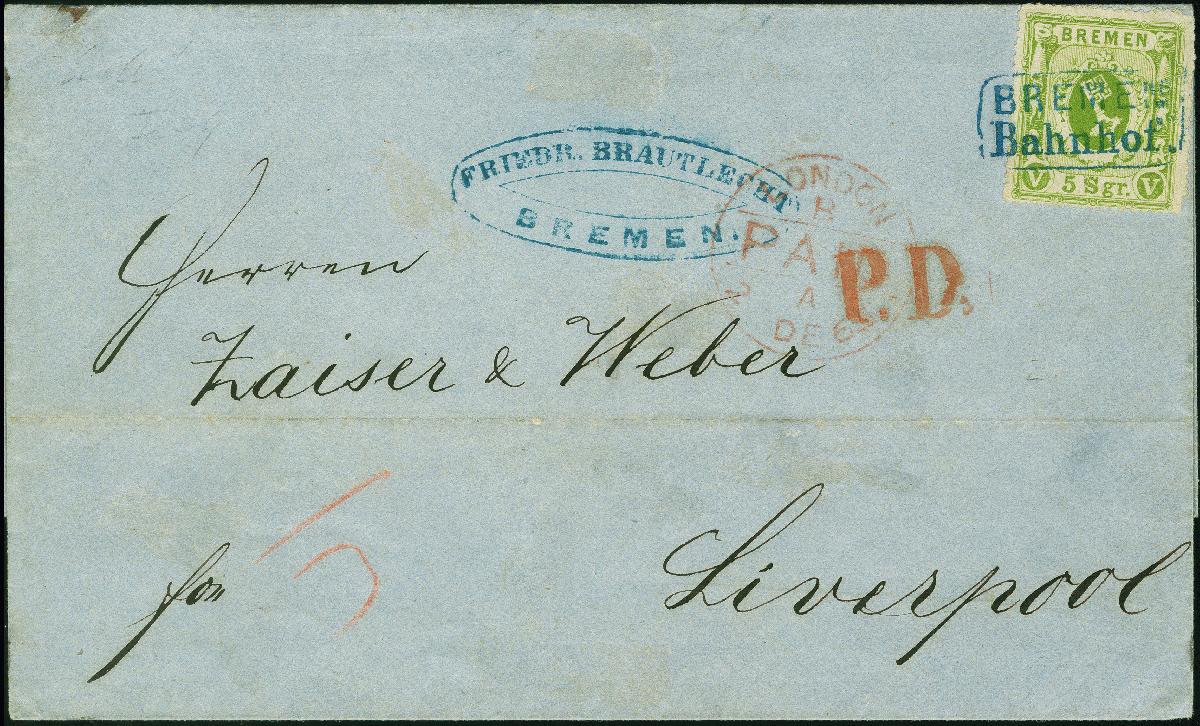 BREMEN
5 Sgr.
V V
BREMEN
Bahnhof.
FRIEDR. BRAUTLECHT
BREMEN.
LONDON
PA
A
DE 6
P.D.
Herren
Zaiser & Weber
Liverpool